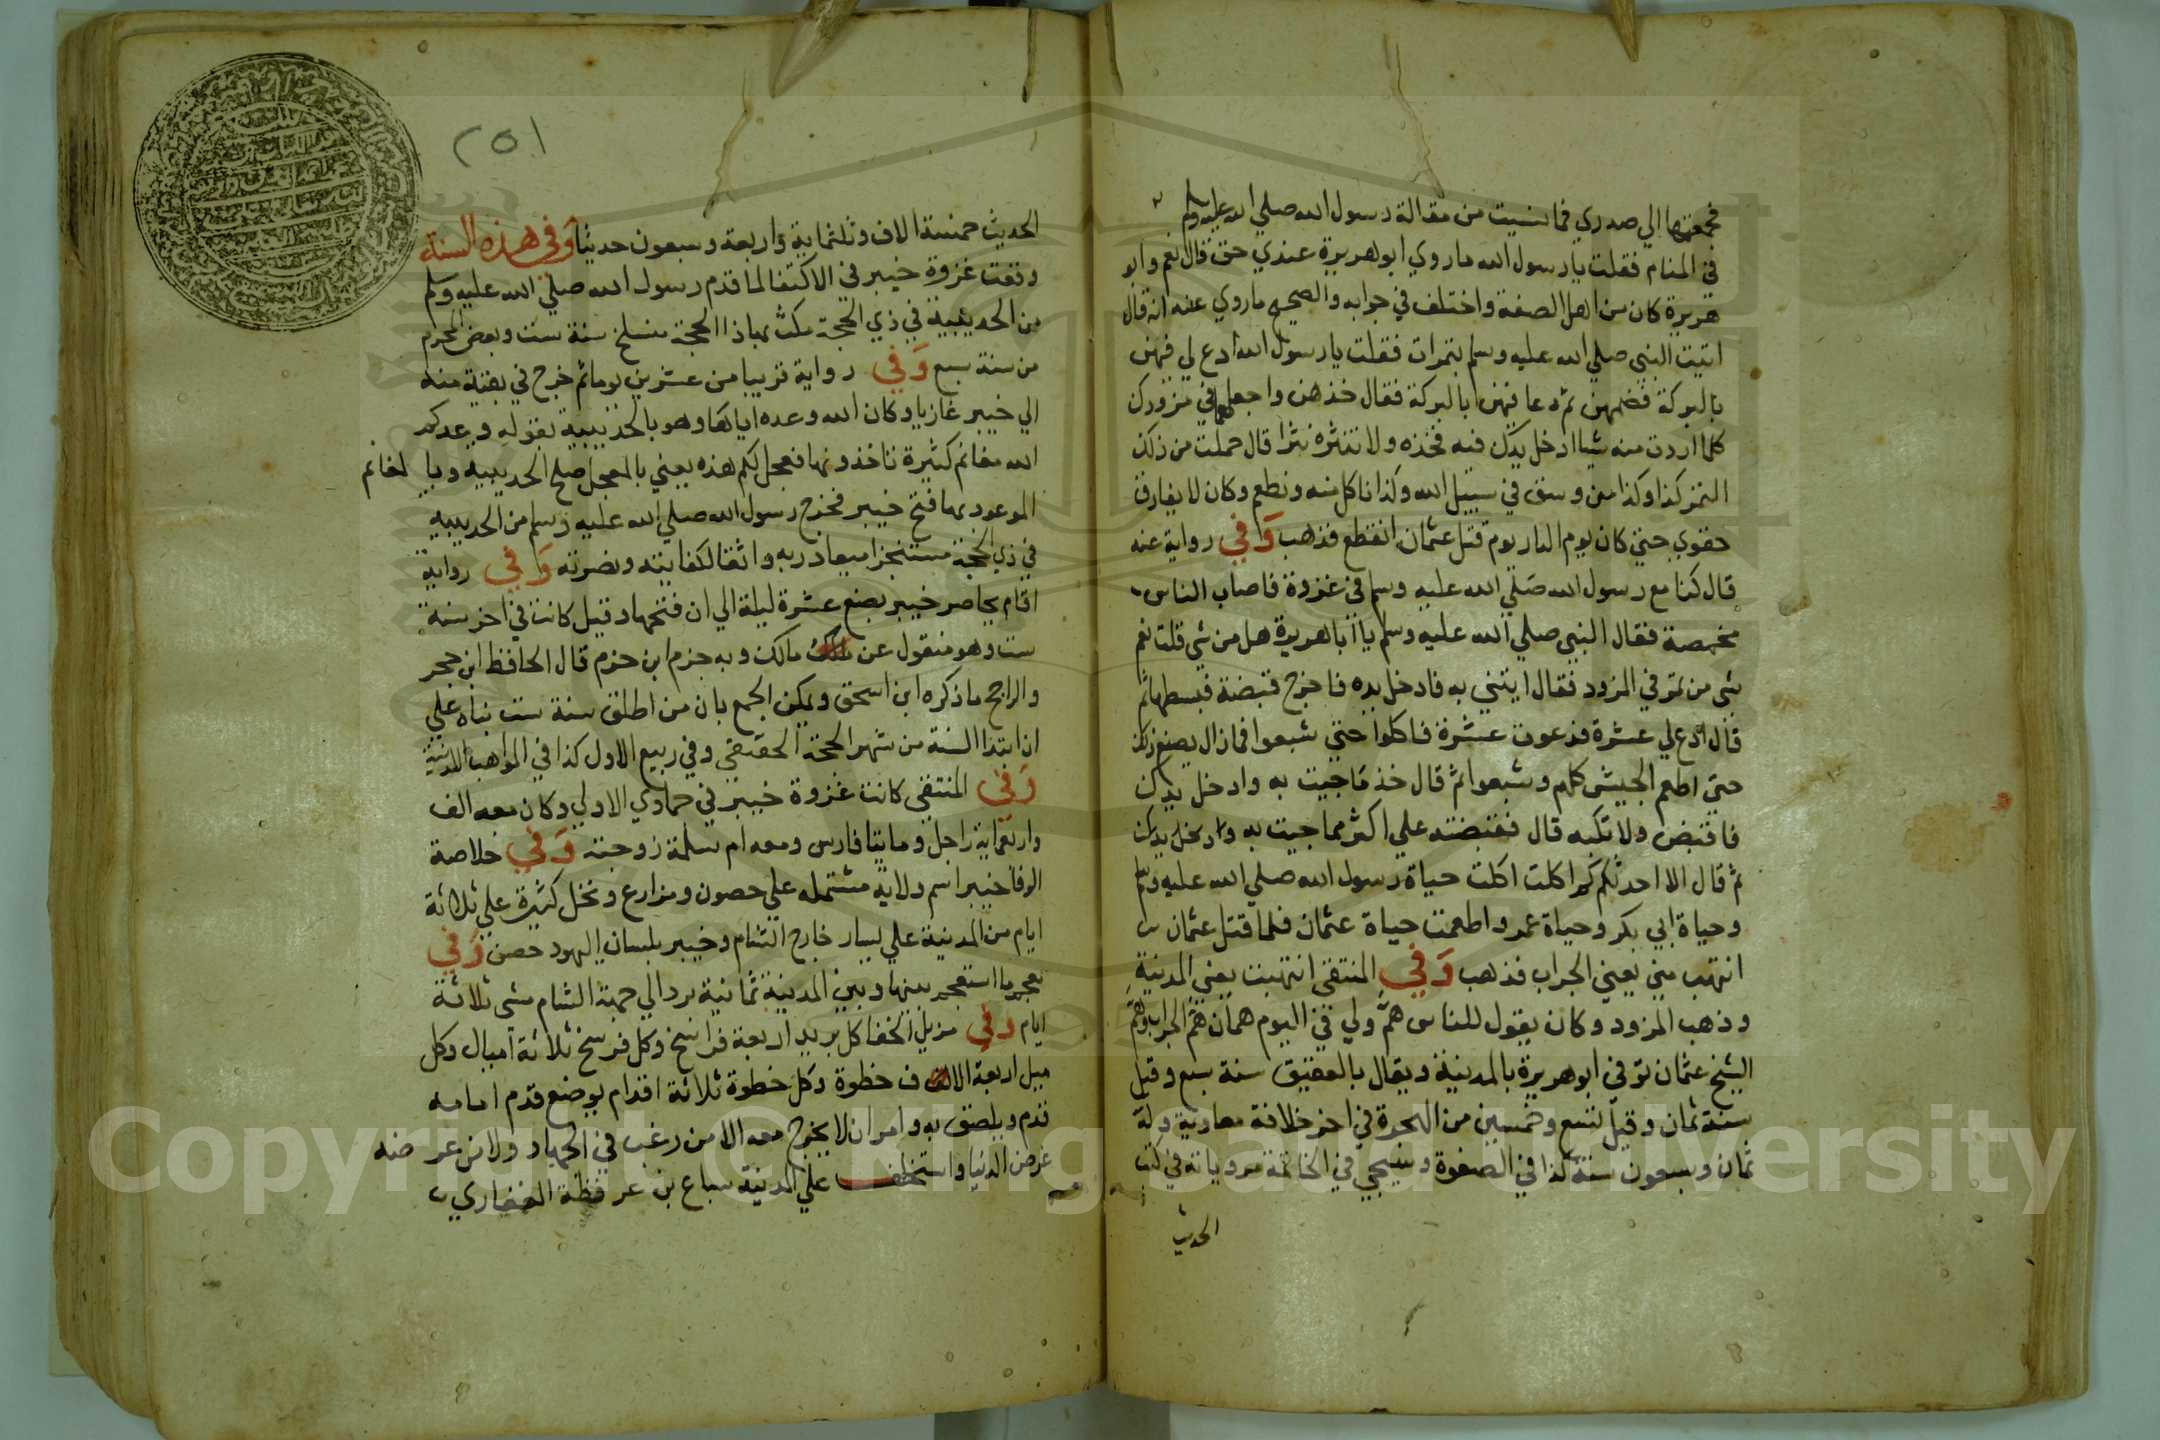 فجمعتها الي صدري فما نسيت من مقالة رسول الله صلي الله عليه وسلم
في المنام فقلت يا رسول الله ما روي ابو هريرة عندي حق قال نعم وابو
هريرة كان من اهل الصفة واختلف في جرابه والصحيح ما روي عنه انه قال
اتيت النبي صلي الله عليه وسلم بتمرات فقلت يا رسول الله ادع لي فيهن
بالبركة فضمهن ثم دعا فيهن بالبركة فقال خذهن واجعلهم في مزودك
كلما اردت منه شيا ادخل يدك فيه فخذه ولا تنثره نثرا قال حملت من ذلك
التمر كذا وكذا من وسق في سبيل الله وكنا ناكل منه ونطعم وكان لا يفارق
حقوي حتي كان يوم الدار يوم قتل عثمان انقطع فذهب وفي رواية عنه
قال كنا مع رسول الله صلي الله عليه وسلم في غزوة فاصاب الناس
مخمصة فقال النبي صلي الله عليه وسلم يا ابا هريرة هل من شي قلت نعم
شي من تمر في المزود فقال ايتني به فادخل يده فاخرج قبضة فبسطها ثم
قال ادع لي عشرة فدعوت عشرة فاكلوا حتي شبعوا فما زال يصنع ذلك
حتي اطعم الجيش كلهم وشبعوا ثم قال خذ ما جيت به وادخل يدك
فاقبض ولا تكبه قال فقبضته علي اكثر مما جيت به وادخل يدك
ثم قال الا احدثكم كم اكلت اكلت حياة رسول الله صلي الله عليه وسلم
وحياة ابي بكر وحياة عمر واطعمت حياة عثمان فلما قتل عثمان
انتهب مني يعني الجراب فذهب وفي المنتقي انتهبت يعني المدينة
وذهب المزود وكان يقول للناس هم ولي في اليوم همان هم الجراب وهم
الشيخ عثمان توفي ابو هريرة بالمدينة ويقال بالعقيق سنة سبع وقيل
سنة ثمان وقيل تسع وخمسين من الهجرة في اخر خلافة معاوية وله
ثمان وسبعون سنة كذا في الصفوة وسيجي في الخاتمة مروياته في كتب
الحديث
٢٥١
الحديث خمسة الاف وثلثماية واربعة وسبعون حديثا وفي هذه السنة
وقعت غزوة خيبر في الاكتفا لما قدم رسول الله صلي الله عليه وسلم
من الحديبية في ذي الحجة مكث بها ذا الحجة منسلخ سنة ست وبعض المحرم
من سنة سبع وفي رواية قريبا من عشرين يوما ثم خرج في بقية منه
الي خيبر غازيا وكان الله وعده اياها وهو بالحديبية بقوله وعدكم
الله مغانم كثيرة تاخذونها فعجل لكم هذه يعني بالمعجل صلح الحديبية وبا لمغانم
الموعود بها فتح خيبر فخرج رسول الله صلي الله عليه وسلم من الحديبية
في ذي الحجة مستنجزا ميعاد ربه واثقا لكفايته ونصرته وفي رواية
اقام يحاصر خيبر بضع عشرة ليلة الي ان فتحها وقيل كانت في اخر سنة
ست وهو منقول عن مالك وبه جزم ابن حزم قال الحافظ ابن حجر
والراجح ما ذكره ابن اسحق ويمكن الجمع بان من اطلق سنة ست بناه علي
ان ابتدا السنة من شهر الهجرة الحقيقي وفي ربيع الاول كذا في المواهب اللدنية
وفي المنتقي كانت غزوة خيبر في جمادي الاولي وكان معه الف
واربعماية راجل ومايتا فارس ومعه ام سلمة زوجته وفي خلاصة
الوفا خيبر اسم ولاية مشتمله علي حصون ومزارع ونخل كثيرة علي ثلاثة
ايام من المدينة علي يسار خارج الشام وخيبر بلسان اليهود حصن وفي
معجم ما استعجم بينها وبين المدينة ثمانية برد الي جهة الشام مشي ثلاثة
ايام وفي مزيل الخفا كل بريد اربعة فراسخ وكل فرسخ ثلاثة اميال وكل
ميل اربعة الاف خطوة وكل خطوة ثلاثة اقدام بوضع قدم امامه
قدم ويلصق به وامر ان لا يخرج معه الا من رغب في الجهاد ولا من عر ضه
عرض الدنيا واستخلف علي المدينة سباع بن عرفطة الغفاري
Copyright © King Saud University